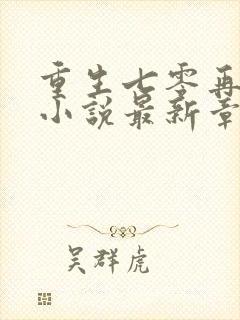 重生七零再
小说最新章
吴群虎